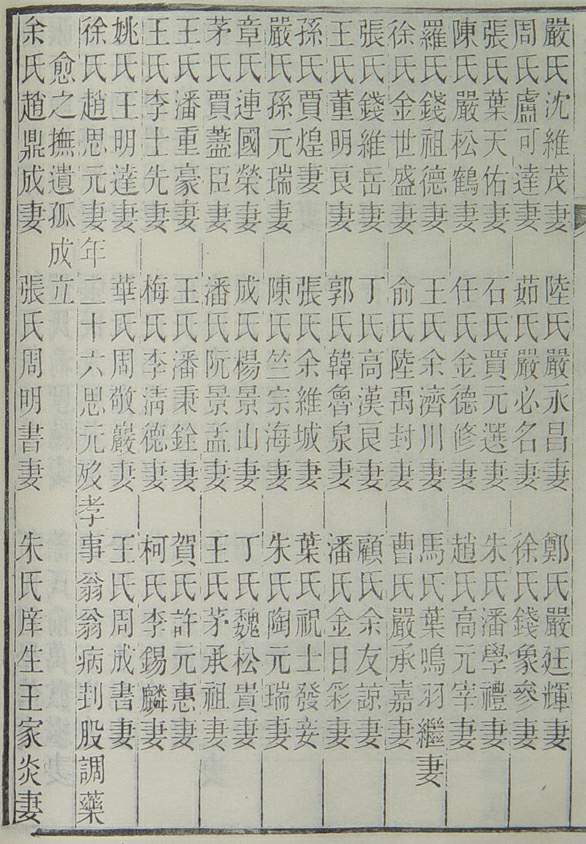 嚴氏沈維茂妻 陸氏嚴永昌妻 鄭氏嚴廷輝妻
周氏盧可達妻 茹氏嚴必名妻 徐氏錢象參妻
張氏葉天佑妻 石氏賈元選妻 朱氏潘學禮妻
陳氏嚴松鶴妻 任氏金德修妻 趙氏高元宰妻
羅氏錢祖德妻 王氏余濟川妻 馬氏葉鳴羽繼妻
徐氏金世盛妻 俞氏陸禹封妻 曹氏嚴承嘉妻
張氏錢維岳妻 丁氏高漢良妻 顧氏余友諒妻
王氏董明良妻 郭氏韓魯泉妻 潘氏金日彩妻
孫氏賈煌妻 張氏余維城妻 葉氏祝士發妾
嚴氏孫元瑞妻 陳氏竺宗海妻 朱氏陶元瑞妻
章氏連國榮妻 成氏楊景山妻 丁氏魏松貴妻
茅氏賈藎臣妻 潘氏阮景孟妻 王氏茅承祖妻
王氏潘重豪妻 王氏潘秉銓妻 賀氏許元惠妻
王氏李士先妻 梅氏李淸德妻 柯氏李錫麟妻
姚氏王明達妻 華氏周敬嚴妻 王氏周成書妻
徐氏趙思元妻年二十六思元歿孝事翁翁病刲股調藥
愈之撫遺孤成立
余氏趙鼎成妻 張氏周明書妻 朱氏庠生王家炎妻